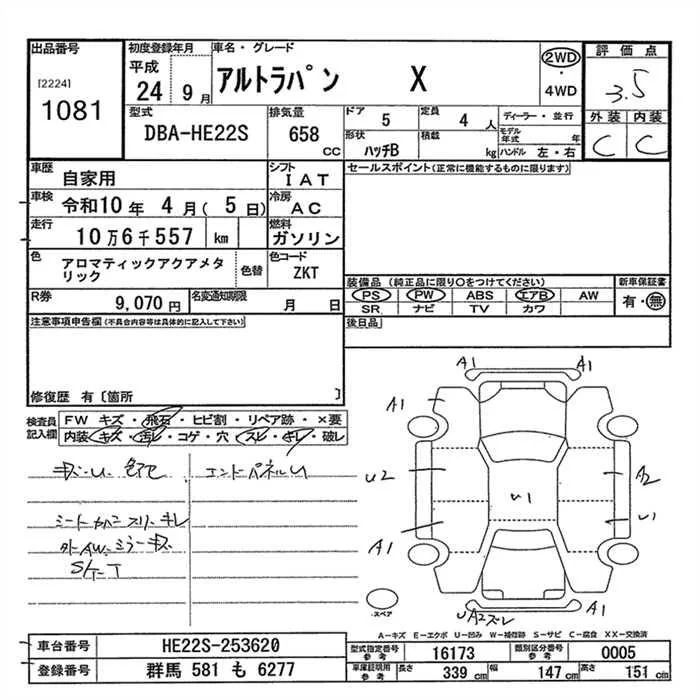 出品番号 初度登録年月 車名・グレード 2WD 評価点
[2224] 平成 アルトラパン X ・ 3.5
1081 24 9月 4WD
外装 内装
C C
型式 排気量 ドア 定員 ディーラー・並行
DBA-HE22S 658 CC 5 4人 モデル年式 年
形状 積載 kg ハンドル 左・右
ハッチB
車歴 自家用 シフト IAT セールスポイント(正常に機能するものに限ります)
車検 令和10年 4月( 5日) 冷房 AC
走行 10万6千557 km 燃料 ガソリン
色 アロマティックアクアメタリック 色替 色コード ZKT
装備品(純正品に限り○をつけてください) 新車保証書
PS PW ABS エアB AW 有・無
SR ナビ TV カワ
R券 9,070円 名変通知期限 月 日
後日品
注意事項申告欄(不具合内容等は具体的に記入して下さい)
修復歴 有〔箇所 〕
検査員記入欄 FW キズ・飛石・ヒビ割・リペア跡・×要
内装・キズ・汚レ・コゲ・穴・スレ・キレ・破レ
キズ・U 色アセ エンドパネルU
シートカバー スリキレ
外AW ミラーキズ
A1 A1
A1
U2 A2
U1 U1
A1
スペア
UA2ズレ A1
A-キズ E-エクボ U-凹み W-補修跡 S-サビ C-腐食 XX-交換済
車台番号 HE22S-253620 型式指定番号 参考 16173 類別区分番号 参考 0005
登録番号 群馬 581 も 6277 車庫証明用 参考 長さ 339 cm 幅 147 cm 高さ 151 cm